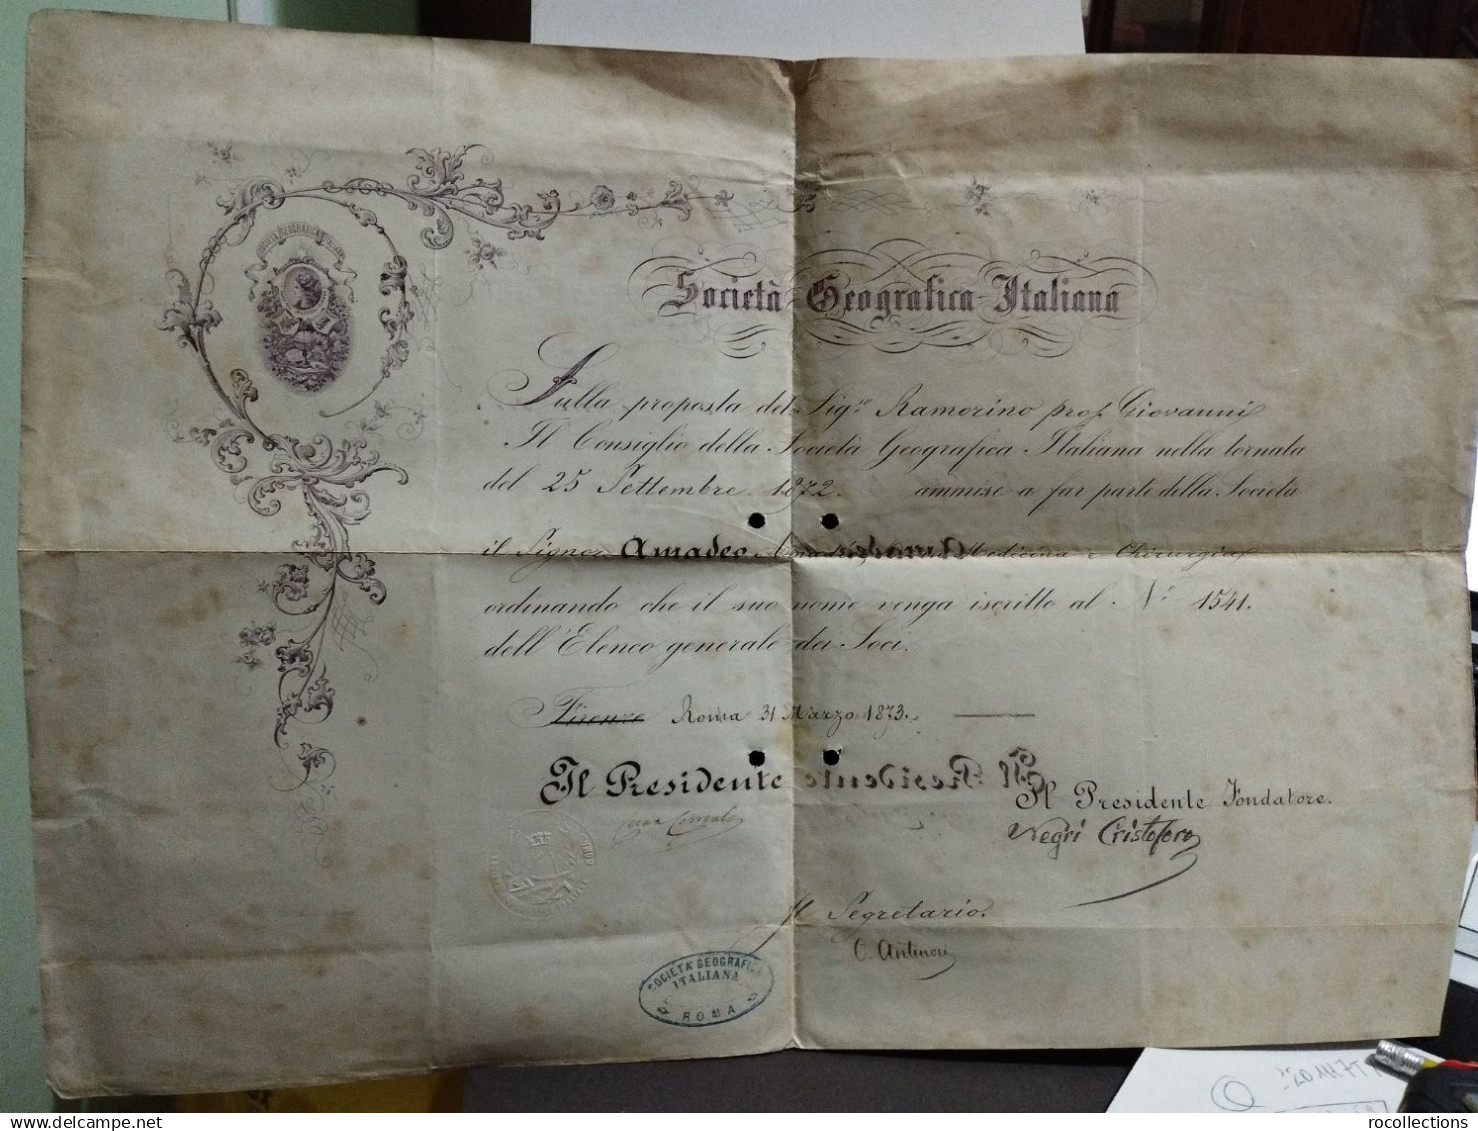 SOCIETÀ GEOGRAFICA ITALIANA
Società Geografica Italiana
Sulla proposta del Sigre Ramorino prof. Giovanni
Il Consiglio della Società Geografica Italiana nella tornata
del 25 Settembre 1872. ammise a far parte della Società
il Signor Amadeo Medicina e Chirurgia
ordinando che il suo nome venga iscritto al Nº 1541.
dell'Elenco generale dei Soci.
Firenze Roma 31 Marzo 1873.
Il Presidente
Il Presidente Fondatore.
Cesare Correnti
Negri Cristoforo
Il Segretario.
O. Antinori
SOCIETÀ GEOGRAFICA
ITALIANA
ROMA
rocollections